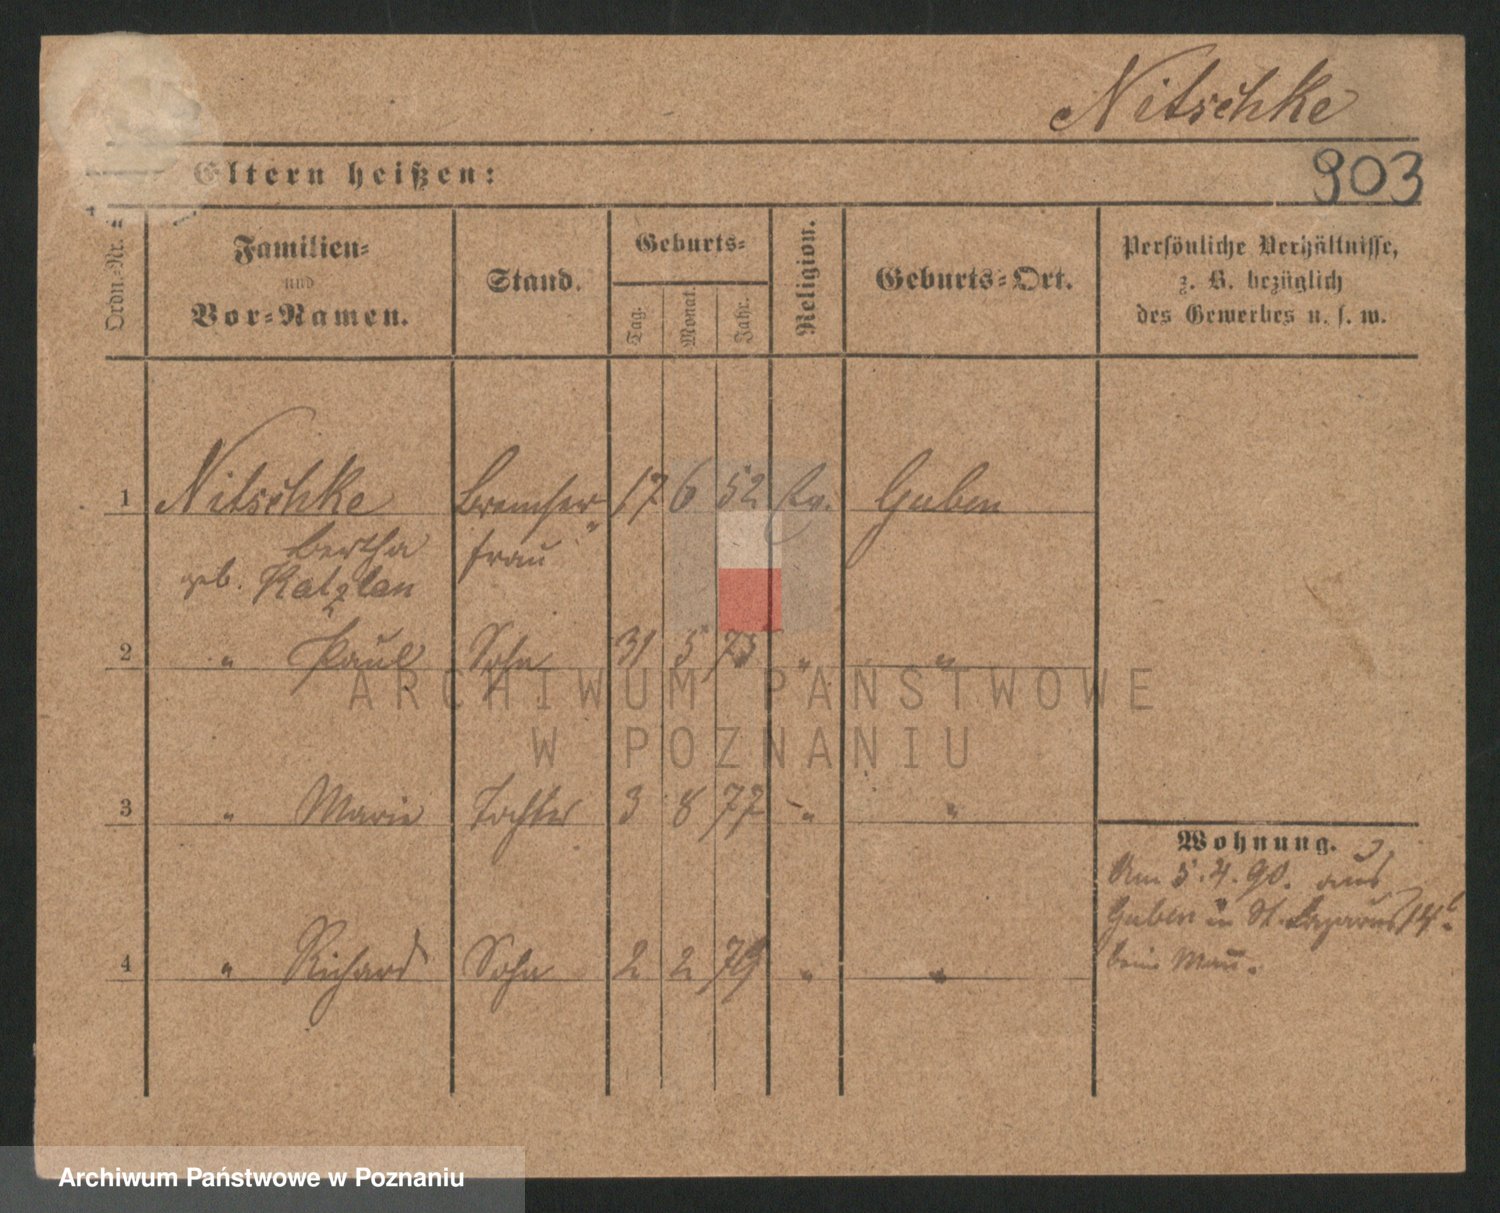 Nitschke
903
Eltern heißen:
Ordn.-Nr.
Familien-
und
Vor-Namen.
Stand.
Geburts-
Tag.
Monat.
Jahr.
Religion.
Geburts-Ort.
Persönliche Verhältnisse,
z. B. bezüglich
des Gewerbes u. s. w.
1 Nitschke 17 6 52 Ev. Guben
Bertha frau
geb.
2 " Paul Sohn 31 5 75 " "
3 " Marie Tochter 3 8 77 " "
4 " Richard Sohn 2 2 79 " "
Wohnung.
Am 5.4.90. aus
Guben in St. Lazarus 14
beim
ARCHIWUM PAŃSTWOWE
W POZNANIU
Archiwum Państwowe w Poznaniu